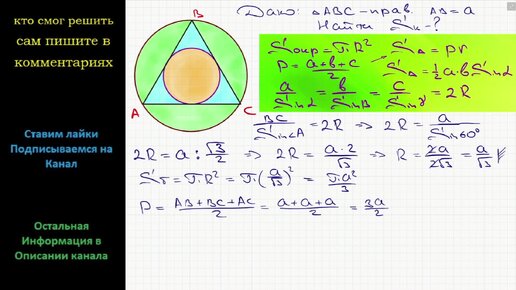 кто смог решить
сам пишите в
комментариях
Ставим лайки
Подписываемся на
Канал
Остальная
Информация в
Описании канала
Дано: △ABC – прав. AB = a
Найти Sк - ?
B
A
C
Sокр = πR²
S△ = pr
P = (a+b+c)/2
S△ = ½a·b Sinα
a/Sinα = b/Sinβ = c/Sinγ = 2R
BC/Sin∠A = 2R ⇒ 2R = a/Sin60°
2R = a : √3/2 ⇒ 2R = a·2/√3 ⇒ R = 2a/2√3 = a/√3
S = πR² = π(a/√3)² = πa²/3
P = (AB+BC+AC)/2 = (a+a+a)/2 = 3a/2